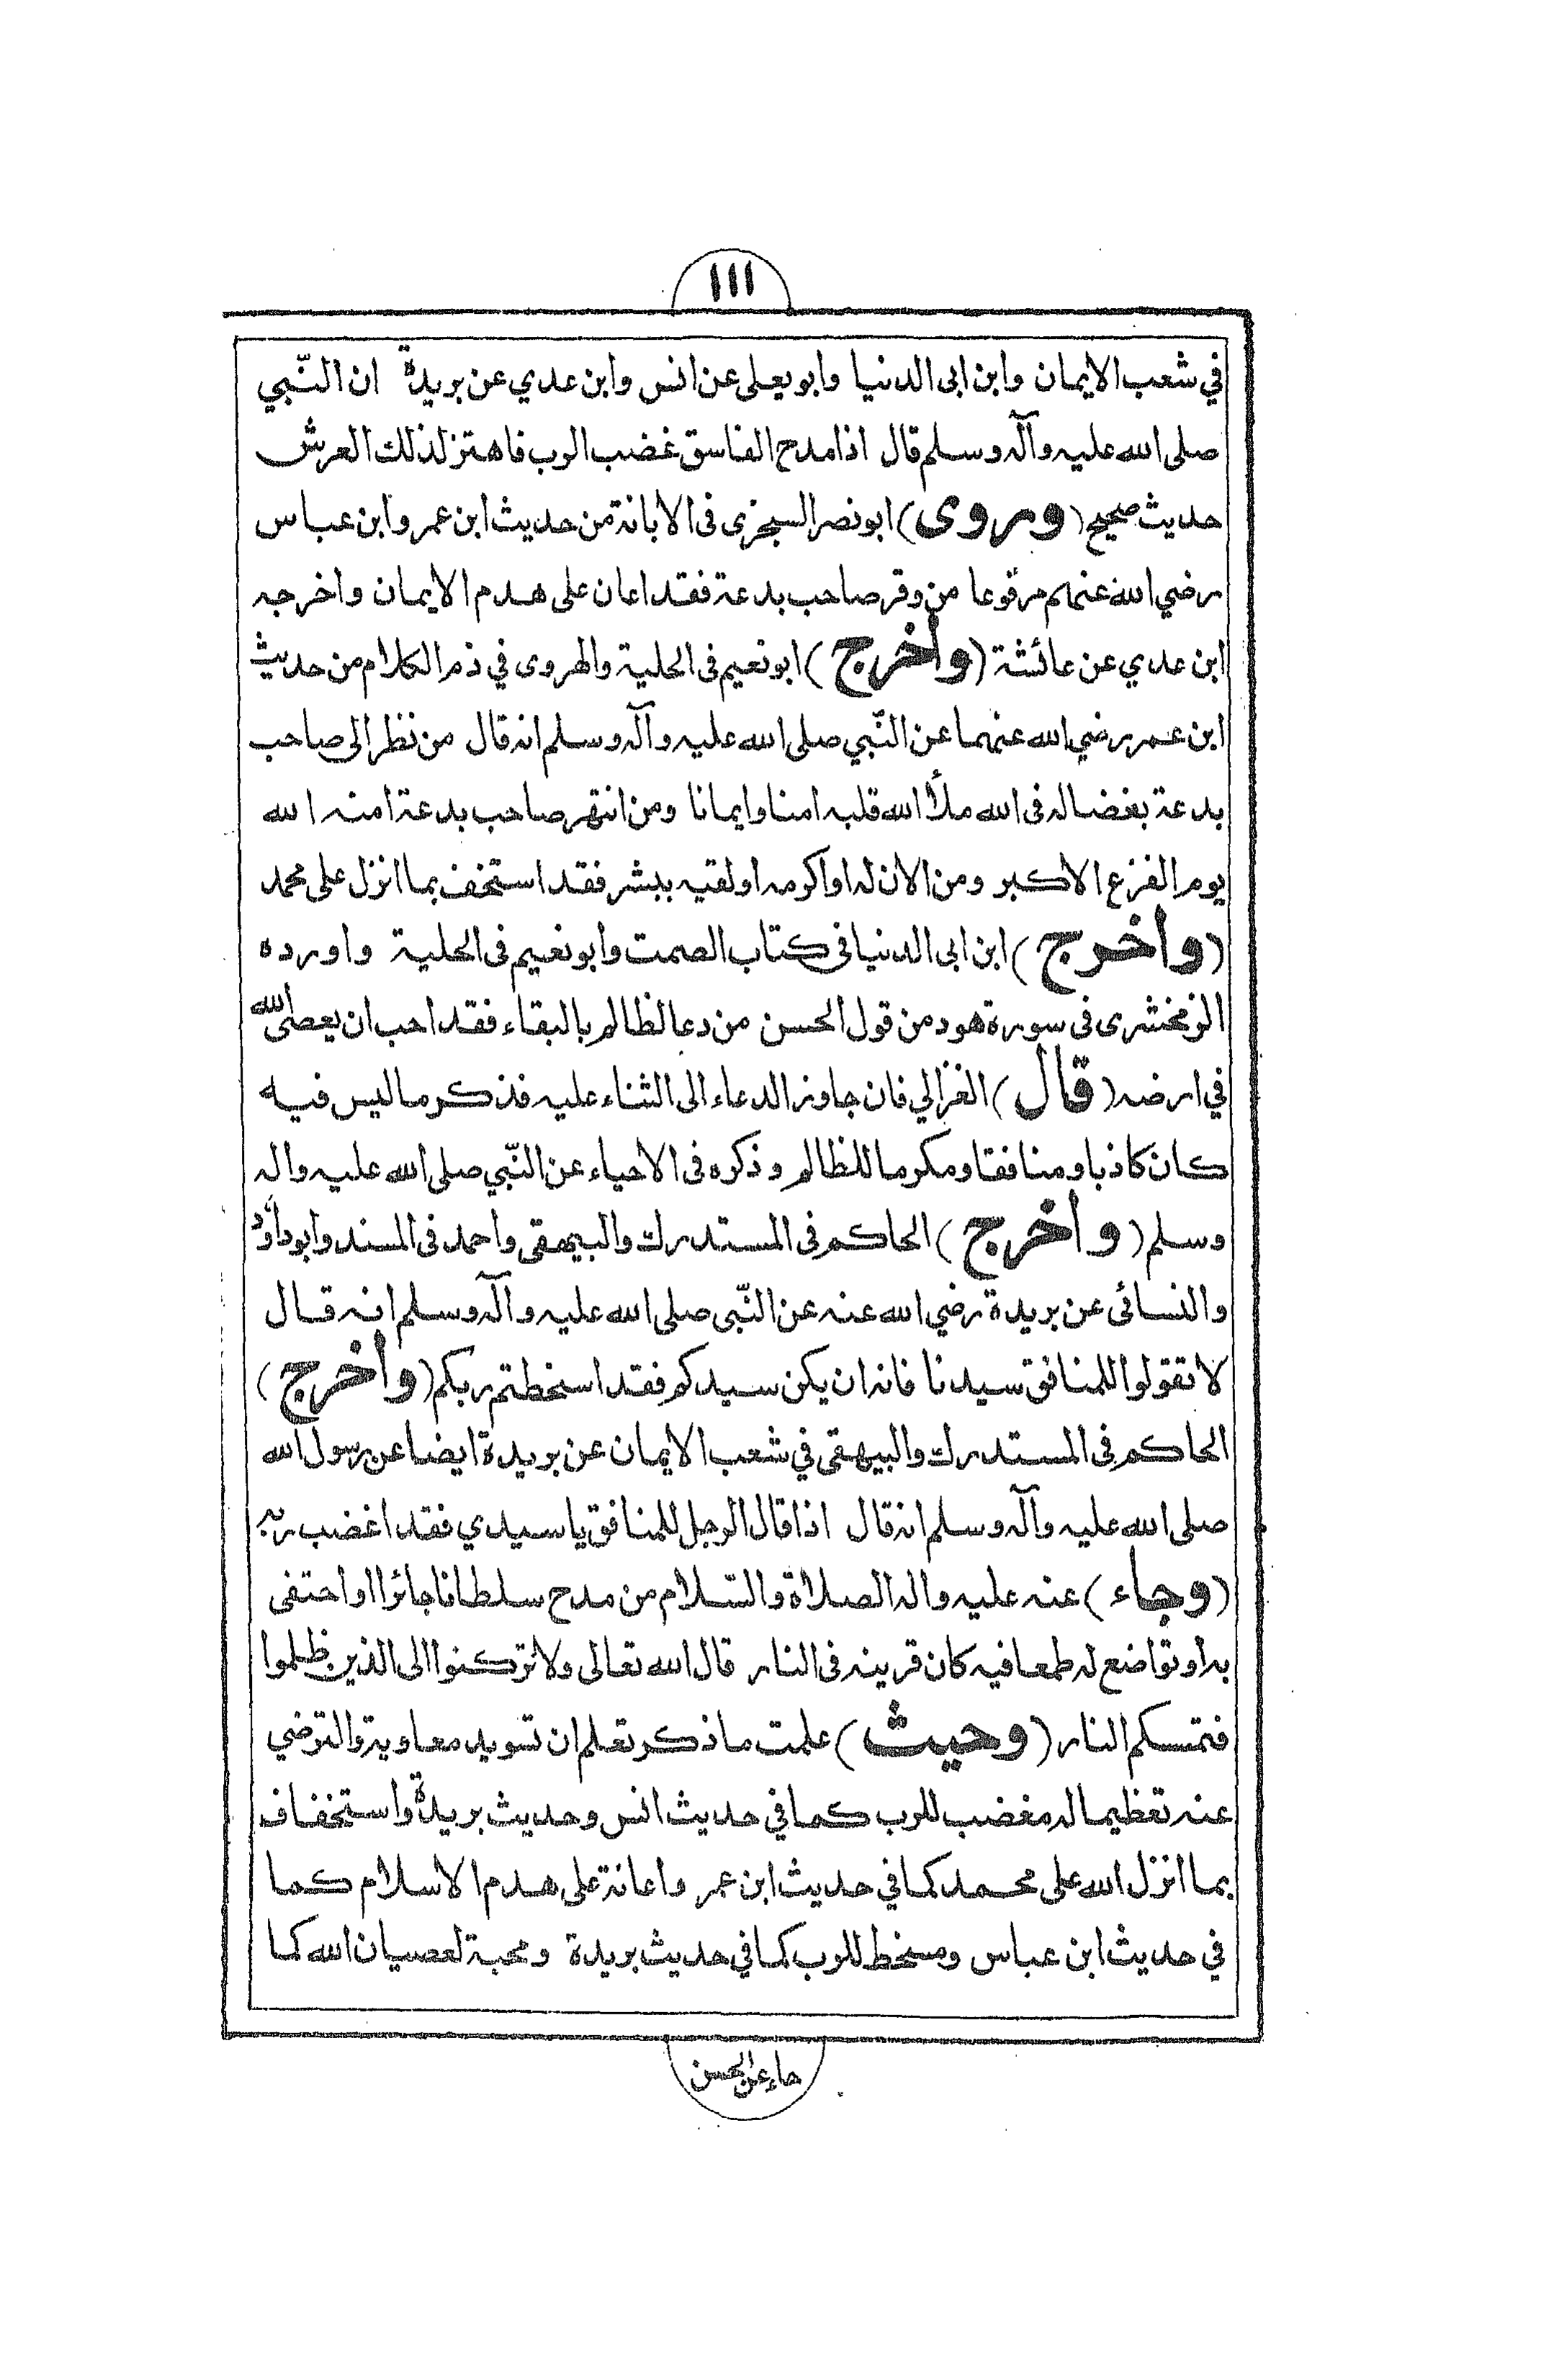 ١١١
في شعب الايمان وابن ابى الدنيا وابو يعلى عن انس وابن عدي عن بريدة ان النّبي
صلى الله عليه وآله وسلم قال اذا مدح الفاسق غضب الرب فاهتز لذلك العرش
حديث صحيح (وروى) ابو نصر السجزى فى الابانة من حديث ابن عمر وابن عباس
رضي الله عنهم مرفوعا من وقر صاحب بدعة فقد اعان على هدم الايمان واخرجه
ابن عدي عن عائشة (وأخرج) ابو نعيم فى الحلية والهروى في ذم الكلام من حديث
ابن عمر رضي الله عنهما عن النّبي صلى الله عليه وآله وسلم انه قال من نظر الى صاحب
بدعة بغضا له فى الله ملأ الله قلبه امنا وايمانا ومن انتهر صاحب بدعة امنه الله
يوم الفزع الاكبر ومن الان له او اكرمه او لقيه ببشر فقد استخف بما انزل على محمد
(وأخرج) ابن ابى الدنيا فى كتاب الصمت وابو نعيم فى الحلية واورده
الزمخشرى فى سورة هود من قول الحسن من دعا لظالم بالبقاء فقد احب ان يعصى الله
في ارضه (قال) الغزالي فان جاوز الدعاء الى الثناء عليه فذكر ما ليس فيه
كان كاذبا ومنافقا ومكرما للظالم وذكره فى الاحياء عن النّبي صلى الله عليه واله
وسلم (وأخرج) الحاكم فى المستدرك والبيهقى واحمد فى المسند وابو داؤد
والنسائى عن بريدة رضي الله عنه عن النّبى صلى الله عليه وآله وسلم انه قال
لا تقولوا للمنافق سيدنا فانه ان يكن سيدكم فقد اسخطتم ربكم (وأخرج)
الحاكم فى المستدرك والبيهقى في شعب الايمان عن بريدة ايضا عن رسول الله
صلى الله عليه وآله وسلم انه قال اذا قال الرجل للمنافق يا سيدي فقد اغضب ربه
(وجاء) عنه عليه واله الصلاة والسّلام من مدح سلطانا جائرا او احتفى
به او تواضع له طمعا فيه كان قرينه فى النار قال الله تعالى ولا تركنوا الى الذين ظلموا
فتمسكم النار (وحيث) علمت ما ذكر تعلم ان تسويد معاوية والترضي
عنه تعظيما له مغضب للرب كما في حديث انس وحديث بريدة واستخفاف
بما انزل الله على محمد كما في حديث ابن عمر واعانة على هدم الاسلام كما
في حديث ابن عباس ومسخط للرب كما في حديث بريدة ومحبة لعصيان الله كما
جاء عن الحسن